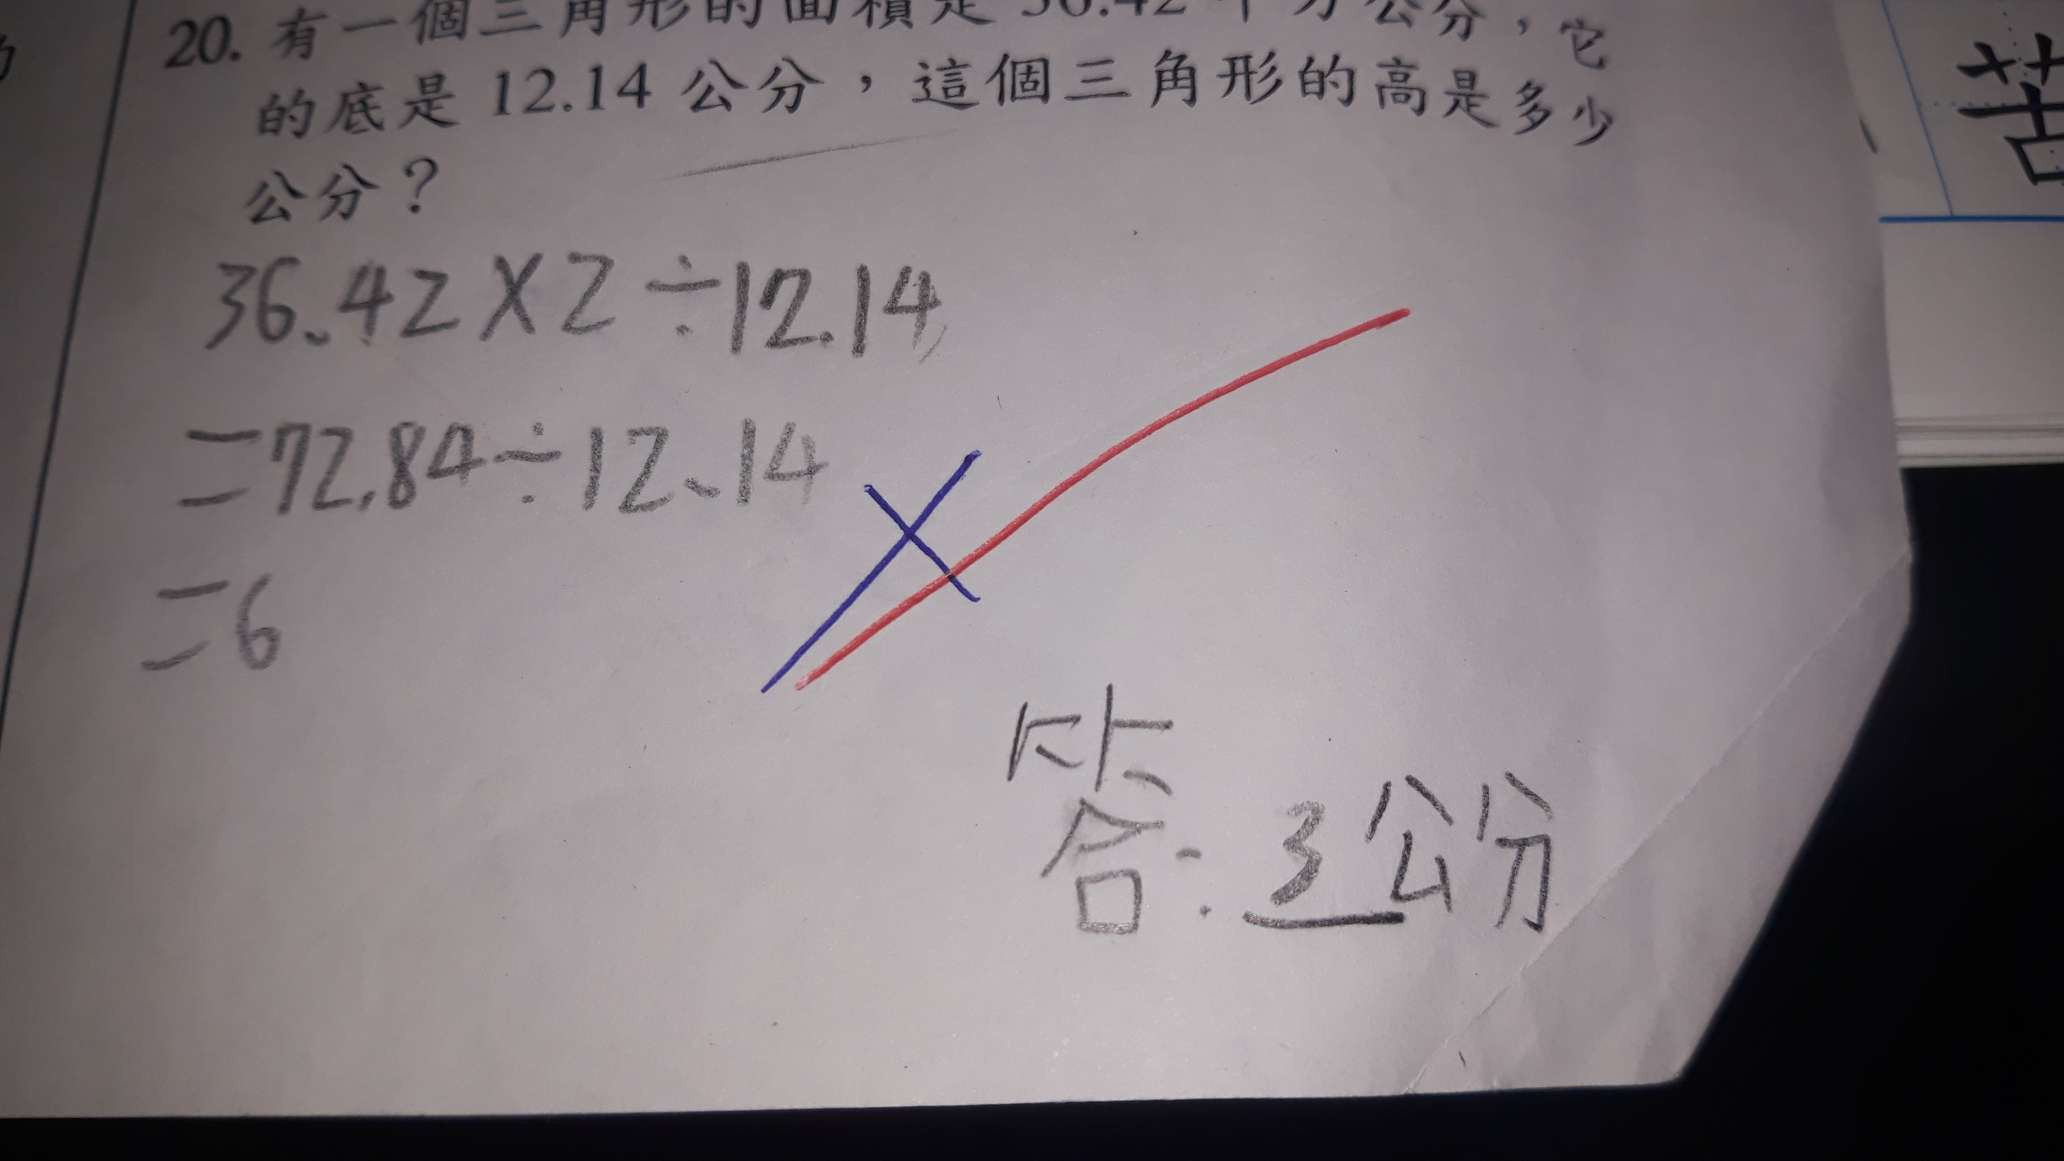 20. 有一個三角形的面積是 36.42 平方公分，它
的底是 12.14 公分，這個三角形的高是多少
公分？
36.42×2÷12.14
=72.84÷12.14
=6
答:3公分
苦